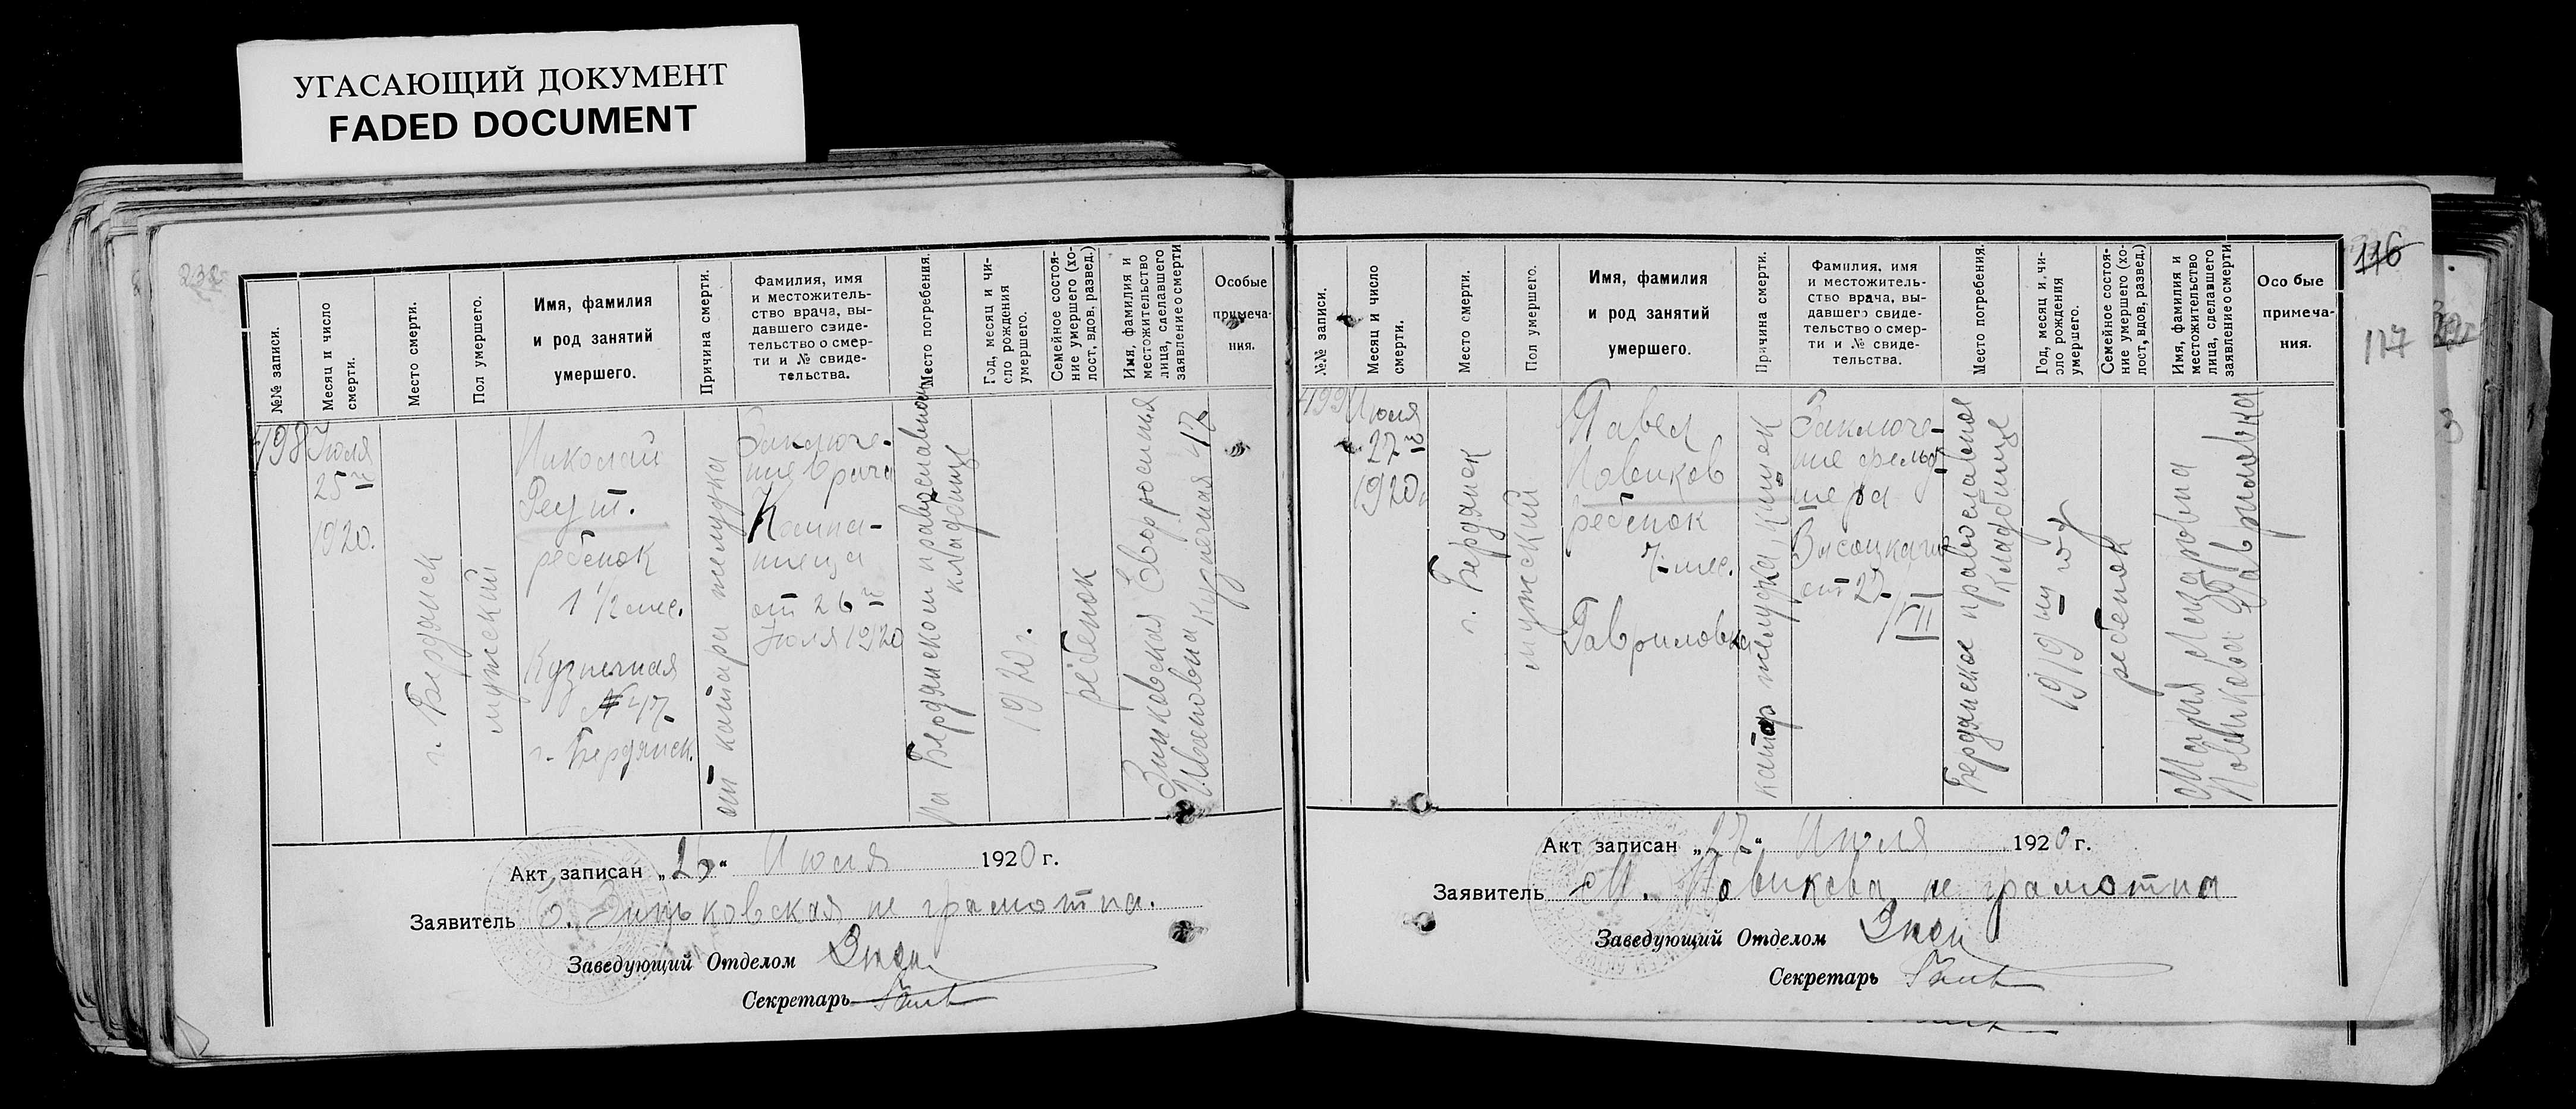 УГАСАЮЩИЙ ДОКУМЕНТ
FADED DOCUMENT
№№ записи.
Месяц и число
смерти.
Место смерти.
Пол умершего.
Имя, фамилия
и род занятий
умершего.
Причина смерти.
Фамилия, имя
и местожитель-
ство врача, вы-
давшего свиде-
тельство о смер-
ти и № свиде-
тельства.
Место погребения.
Год, месяц и чи-
сло рождения
умершего.
Семейное состоя-
ние умершего (хо-
лост, вдов, развед.)
Имя, фамилия и
местожительство
лица, сделавшего
заявление о смерти
Особые
примеча-
ния.
498
Июля
25го
1920.
г. Бердянск
мужский
Николай
Реут.
ребенок
1 1/2 мес.
Кузнечная
№ 47
г. Бердянск.
от катара желудка
Заключе-
ние врача
от 26го
Июля 1920
на Бердянском православном
кладбище
1920 г.
ребенок
Зинковская Евфросинья
Ивановна Кузнечная 47
Акт записан „26“ Июля 1920 г.
Заявитель Зиньковская не грамотна.
Заведующий Отделом
Секретарь
116
117
№№ записи.
Месяц и число
смерти.
Место смерти.
Пол умершего.
Имя, фамилия
и род занятий
умершего.
Причина смерти.
Фамилия, имя
и местожитель-
ство врача, вы-
давшего свиде-
тельство о смер-
ти и № свиде-
тельства.
Место погребения.
Год, месяц и чи-
сло рождения
умершего.
Семейное состоя-
ние умершего (хо-
лост, вдов, развед.)
Имя, фамилия и
местожительство
лица, сделавшего
заявление о смерти
Особые
примеча-
ния.
499
Июля
27го
1920г
г. Бердянск
мужский
Павел
Новиков
ребенок
7 мес.
Гавриловка
катар желудка, кишек
Заключе-
ние фельд
шера
Высоцкаго
от 27
/VII
Бердянское православное
кладбище
1919
ребенок
Мария Лазаровна
Новикова Гавриловка
Акт записан „27“ Июля 1920 г.
Заявитель М. Новикова не грамотна
Заведующий Отделом
Секретарь